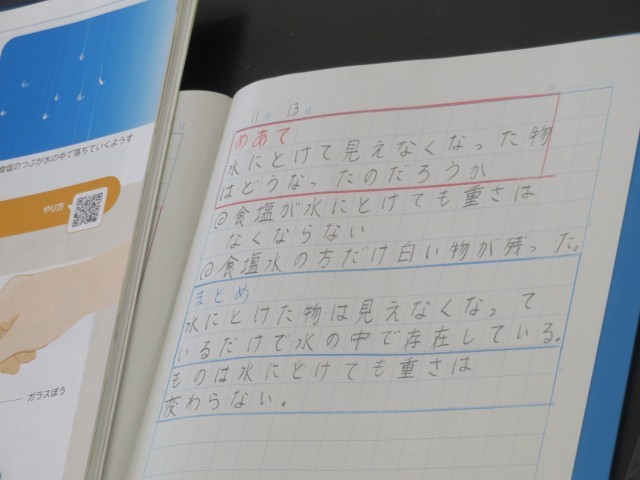 食塩のつぶが水の中で落ちていくようす
やり方
ガラスぼう
11月 13日
めあて
水にとけて見えなくなった物
はどうなったのだろうか
◎食塩が水にとけても重さは
なくならない
◎食塩水の方だけ白い物が残った。
まとめ
水にとけた物は見えなくなって
いるだけで水の中で存在している。
ものは水にとけても重さは
変わらない。